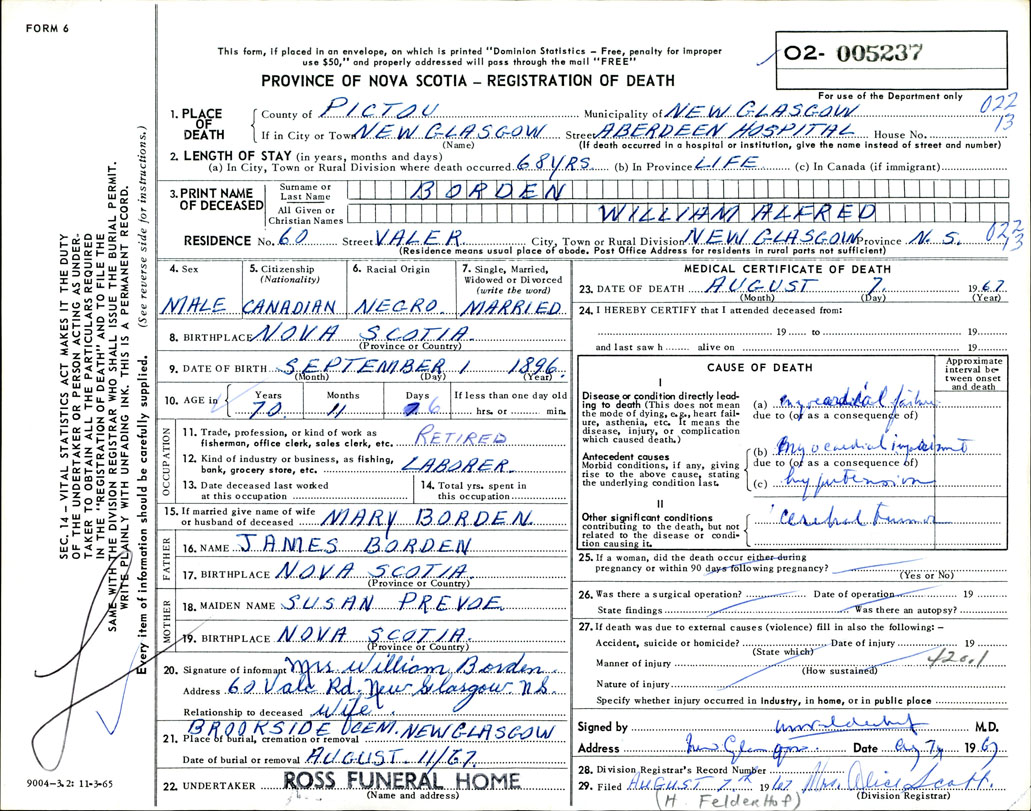 FORM 6
This form, if placed in an envelope, on which is printed "Dominion Statistics – Free, penalty for improper
use $50," and properly addressed will pass through the mail "FREE"
PROVINCE OF NOVA SCOTIA – REGISTRATION OF DEATH
02- 005237
For use of the Department only
022
13
1. PLACE OF DEATH
County of PICTOU Municipality of NEW GLASGOW
If in City or Town NEW GLASGOW Street ABERDEEN HOSPITAL House No.
(Name) (If death occurred in a hospital or institution, give the name instead of street and number)
2. LENGTH OF STAY (in years, months and days)
(a) In City, Town or Rural Division where death occurred 68 YRS. (b) In Province LIFE (c) In Canada (if immigrant)
3. PRINT NAME OF DECEASED
Surname or Last Name BORDEN
All Given or Christian Names WILLIAM ALFRED
RESIDENCE No. 60 Street VALE R City, Town or Rural Division NEW GLASGOW Province N.S. 022
13
(Residence means usual place of abode. Post Office Address for residents in rural parts not sufficient)
4. Sex
MALE
5. Citizenship
(Nationality)
CANADIAN
6. Racial Origin
NEGRO
7. Single, Married,
Widowed or Divorced
(write the word)
MARRIED
8. BIRTHPLACE NOVA SCOTIA
(Province or Country)
9. DATE OF BIRTH SEPTEMBER 1 1896
(Month) (Day) (Year)
10. AGE in
Years Months Days If less than one day old
70 11 6 hrs. or min.
OCCUPATION
11. Trade, profession, or kind of work as
fisherman, office clerk, sales clerk, etc. RETIRED
12. Kind of industry or business, as fishing,
bank, grocery store, etc. LABORER.
13. Date deceased last worked
at this occupation
14. Total yrs. spent in
this occupation
15. If married give name of wife
or husband of deceased MARY BORDEN
FATHER
16. NAME JAMES BORDEN
17. BIRTHPLACE NOVA SCOTIA
(Province or Country)
MOTHER
18. MAIDEN NAME SUSAN PREVOE
19. BIRTHPLACE NOVA SCOTIA
(Province or Country)
20. Signature of informant Mrs. William Borden
Address 60 Vale Rd. New Glasgow N.S.
Relationship to deceased wife
BROOKSIDE CEM. NEW GLASGOW
21. Place of burial, cremation or removal
Date of burial or removal AUGUST 11/67.
22. UNDERTAKER ROSS FUNERAL HOME
(Name and address)
MEDICAL CERTIFICATE OF DEATH
23. DATE OF DEATH AUGUST 7. 1967
(Month) (Day) (Year)
24. I HEREBY CERTIFY that I attended deceased from:
19 to 19
and last saw h alive on 19
CAUSE OF DEATH
Approximate
interval be-
tween onset
and death
I
Disease or condition directly lead-
ing to death (This does not mean
the mode of dying, e.g., heart fail-
ure, asthenia, etc. It means the
disease, injury, or complication
which caused death.)
(a) myocardial failure
due to (or as a consequence of)
Antecedent causes
Morbid conditions, if any, giving
rise to the above cause, stating
the underlying condition last.
(b) myocardial
due to (or as a consequence of)
(c) hypertension
II
Other significant conditions
contributing to the death, but not
related to the disease or condi-
tion causing it.
cerebral tumor
25. If a woman, did the death occur either during
pregnancy or within 90 days following pregnancy?
(Yes or No)
26. Was there a surgical operation? Date of operation 19
State findings Was there an autopsy?
27. If death was due to external causes (violence) fill in also the following: –
Accident, suicide or homicide? Date of injury 19
(State which)
Manner of injury 420.1
(How sustained)
Nature of injury
Specify whether injury occurred in Industry, in home, or in public place
Signed by M.D.
Address New Glasgow. Date Aug 7 1967
28. Division Registrar's Record Number
29. Filed AUGUST 1967 Mrs. Alice Scott.
(H. Feldenhof) (Division Registrar)
SEC. 14 – VITAL STATISTICS ACT MAKES IT THE DUTY
OF THE UNDERTAKER OR PERSON ACTING AS UNDER-
TAKER TO OBTAIN ALL THE PARTICULARS REQUIRED
IN THE "REGISTRATION OF DEATH" AND TO FILE THE
SAME WITH THE DIVISION REGISTRAR WHO SHALL ISSUE THE BURIAL PERMIT.
WRITE PLAINLY WITH UNFADING INK. THIS IS A PERMANENT RECORD.
Every item of information should be carefully supplied. (See reverse side for instructions.)
9004-3.2: 11-3-65